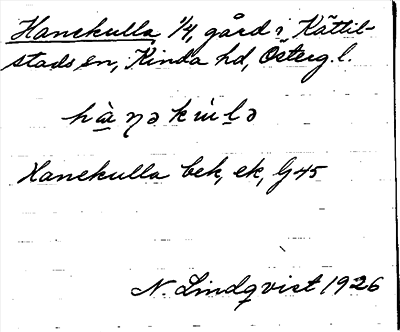 Hanekulla 1/4, gård i Kättil-
stads sn, Kinda hd, Österg.l.
hànəkùlə
Hanekulla bek, ek, G 45
N. Lindqvist 1926